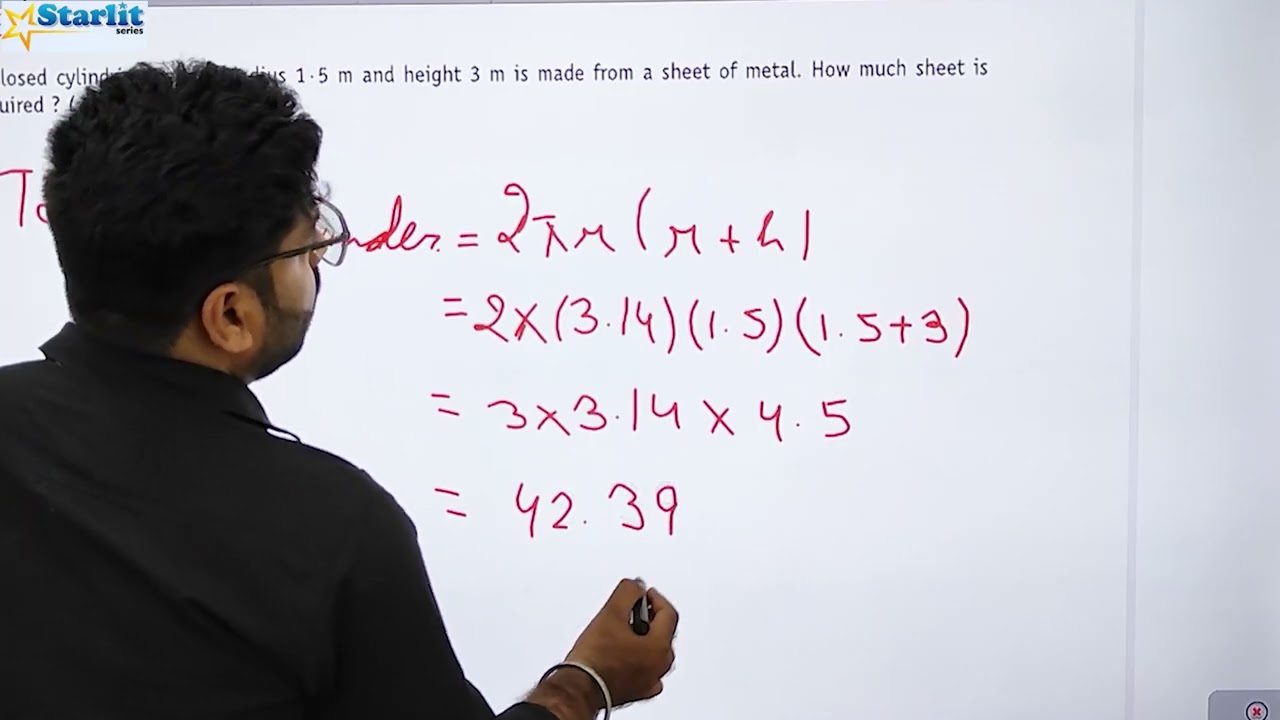 Starlit
series
losed 1·5 m and height 3 m is made from a sheet of metal. How much sheet is
uired ? (
= 2πr (r + h)
= 2 × (3.14) (1.5) (1.5 + 3)
= 3 × 3.14 × 4.5
= 42.39